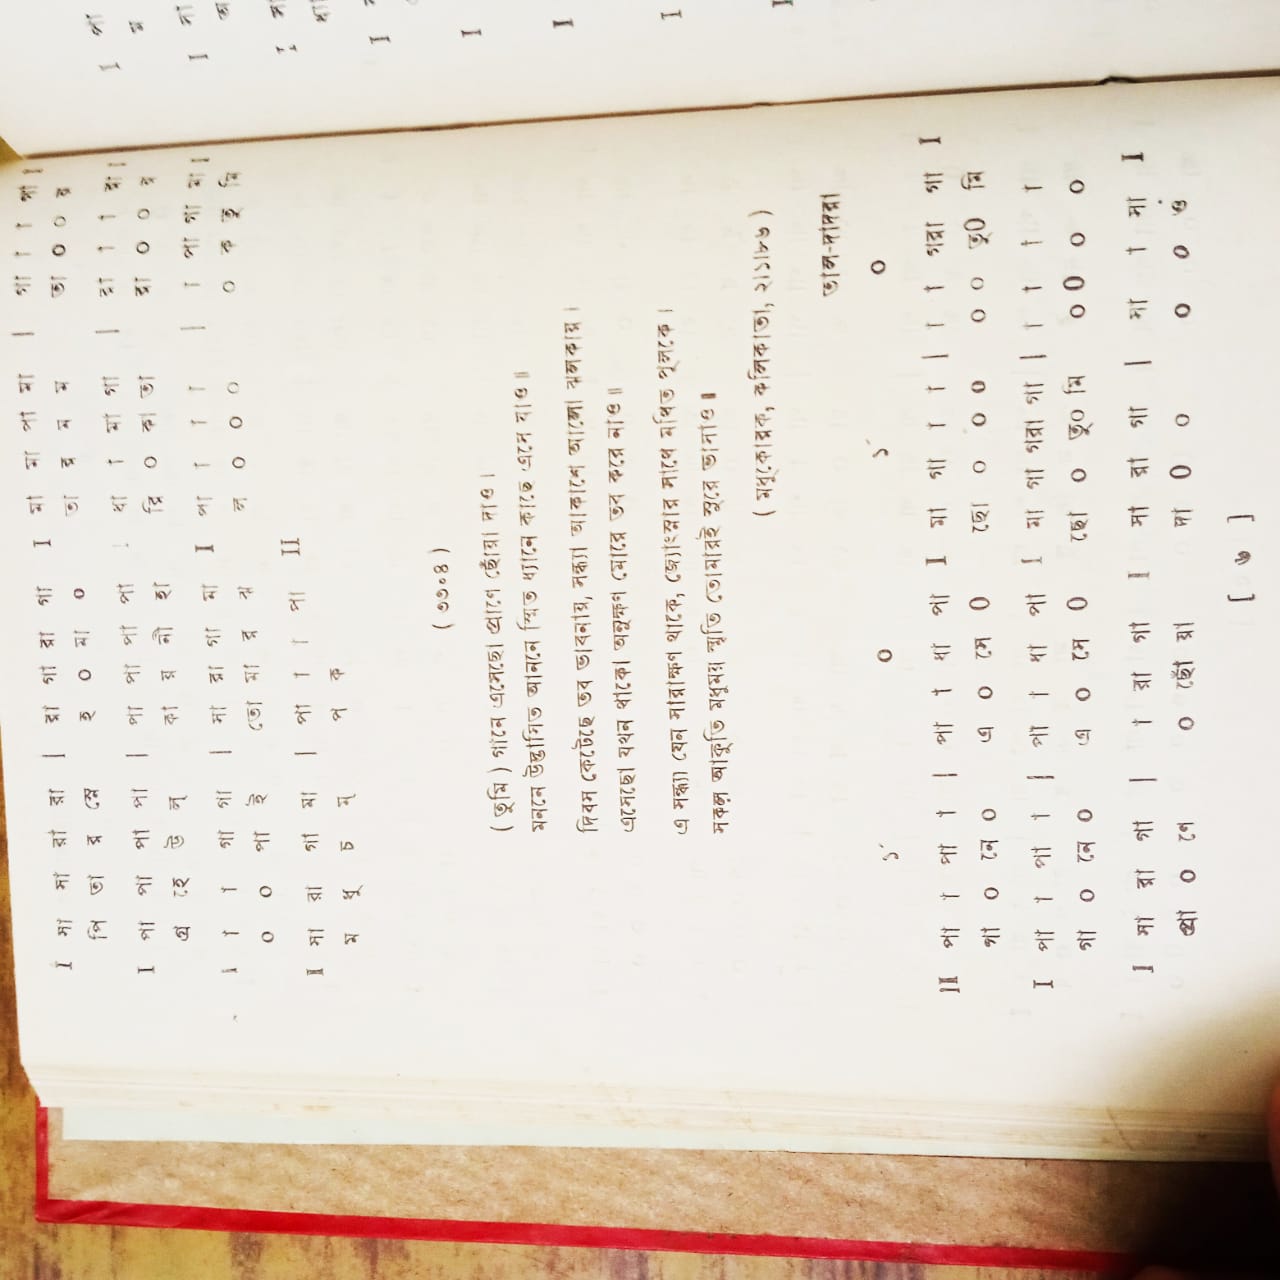 I সা সা রা রা | রা গা রা গা I মা মা পা মা | গা া া পা I
পি তা র সে | হ ০ মা ০ তা র ম ম তা ০ ০ র
I পা পা পা পা | পা পা পা পা I ধা া মা পা | রা া া রা I
গ্র হে উ প্ কা র নী হা রি ০ কা তা রা ০ ০ র
I া া গা গা | সা রা গা মা I পা া া া | া পা গা মা I
০ ০ পা ই তো মা র ঝ ল ০ ০ ০ ০ ক তু মি
I সা রা গা মা | পা া া পা II
ম ধু চ ন্ প ক
( ৩৩০৪ )
( তুমি ) গানে এসেছো প্রাণে ছোঁয়া দাও ।
মননে উদ্ভাসিত আননে স্মিত ধ্যানে কাছে এনে নাও ॥
দিবস কেটেছে তব ভাবনায়, সন্ধ্যা আকাশে আলো ঝলকায় ।
এসেছো যখন থাকো অনুক্ষণ মোরে তব করে নাও ॥
এ সন্ধ্যা যেন সারাক্ষণ থাকে, জ্যোৎস্নার সাথে মথিত পুলকে ।
সকল আকুতি মধুময় স্মৃতি তোমারই সুরে ভাসাও ॥
( মধুকোরক, কলিকাতা, ২১৮৫৬ )
তাল-দাদরা
১´ ০ ১´ ০
II পা া পা া | পা া ধা পা I মা গা া া | া া গরা গা I
গা ০ নে ০ এ ০ সে ০ ছো ০ ০ ০ ০ ০ তু০ মি
I পা া পা া | পা া ধা পা I মা গা গরা গা | া া া া
গা ০ নে ০ এ ০ সে ০ ছো ০ তু০ মি ০০ ০ ০
I সা রা গা | া রা গা I সা রা গা | সা া সা I
প্রা ০ ণে ০ ছোঁ য়া দা ০ ০ ০ ০ ও
[ ৬ ]